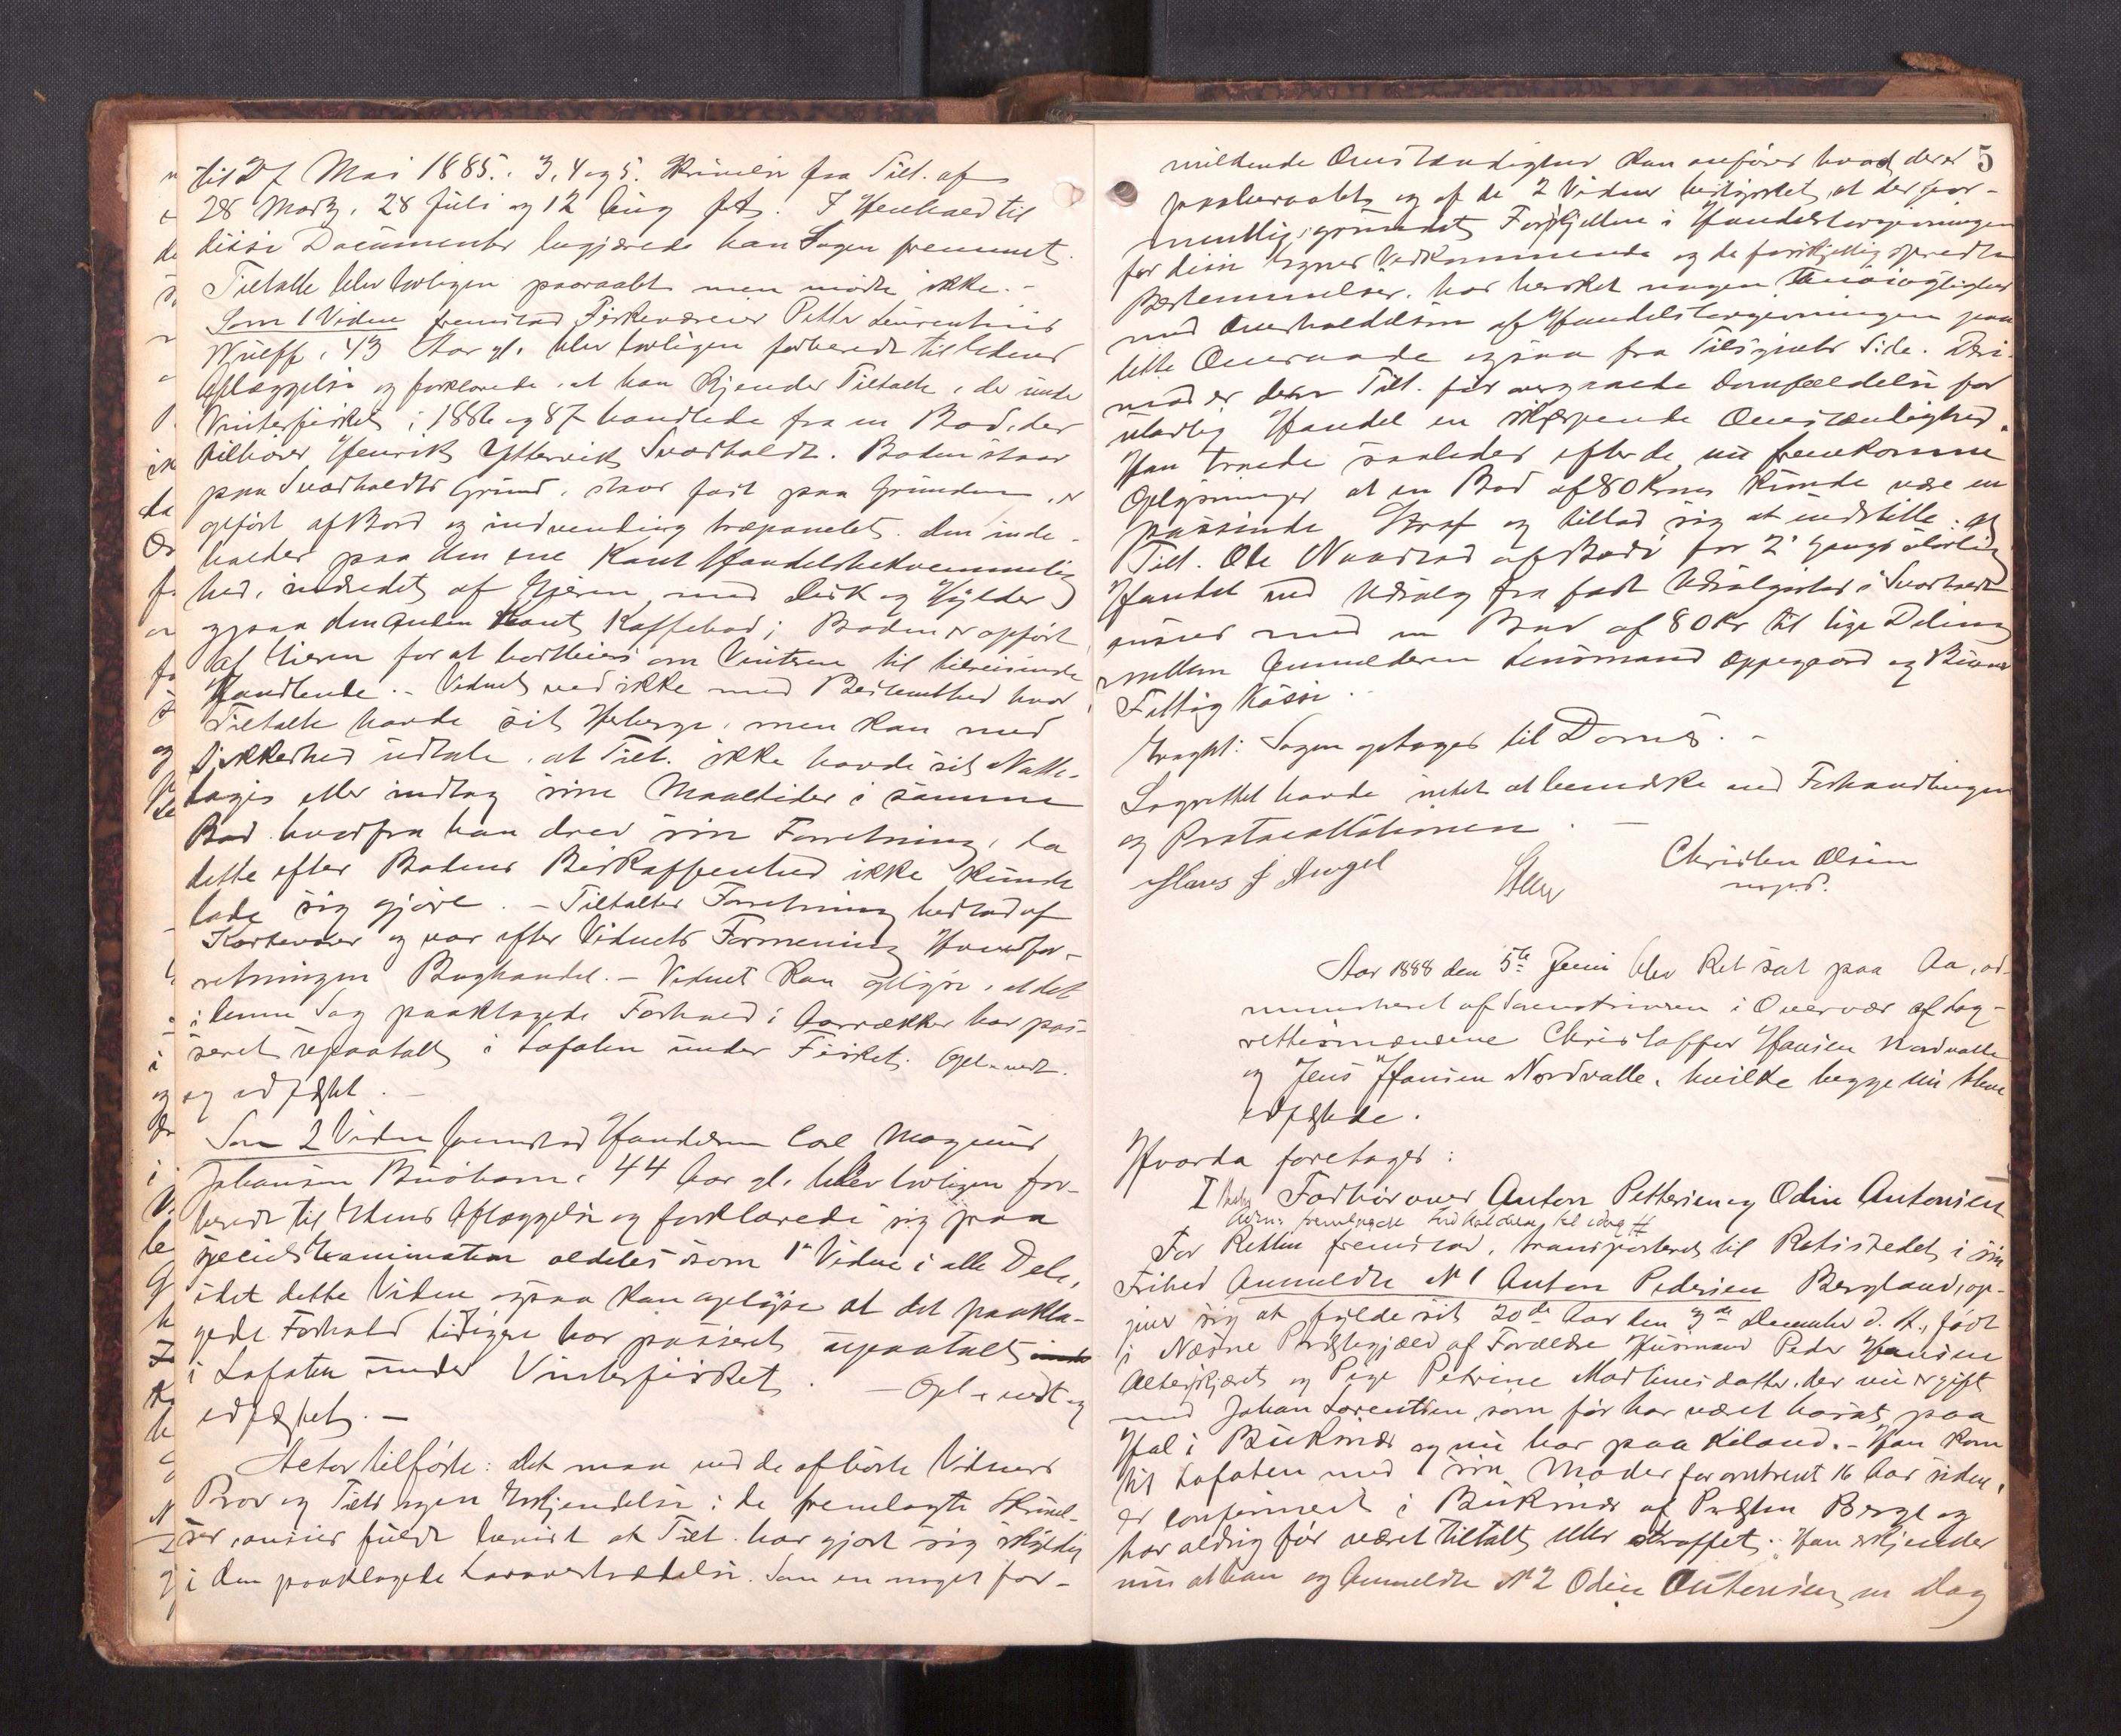 til 27 Mai 1885. 3, 4 og 5. Skrivelse fra Tilt. af
28 Marts, 28 Juli og 12 Aug f.A. I Henhold til
disse Documenter begjærede han Sagen fremmet.
Tiltalte blev lovligen paaraabt men mødte ikke. -
Som 1 Vidne fremstod Petter Laurentius
Wulff, 43 Aar gl. blev lovligen forberedt til Edens
Aflæggelse og forklarede, at han kjender Tiltalte, der under
Vinterfisket i 1886 og 87 handlede fra en Bod, der
tilhører Henrik Yttervik Svarholdt. Boden staar
paa Svarholdts Grund, staar fast paa Grunden, er
opført af Bord og indvending træpanelet. Den inde-
holder paa den ene Kant Handelsbekvemmelig
hed, indredet af Eieren med Disk og Hylder
og paa den anden Kant Kaffebod; Boden er opført
af Eieren for at bortleies om Vinteren til tilreisende
Handlende. - Vidnet ved ikke med Bestemthed hvor
Tiltalte havde sit Herberge, men kan med
Sikkerhed udtale, at Tilt. ikke havde sit Natte-
logis eller indtog sine Maaltider i samme
Bod hvorfra han drev sin Forretning, da
dette efter Bodens Beskaffenhed ikke kunde
lade sig gjøre. - Tiltaltes Forretning bestod af
Kortevarer og var efter Vidnets Formening Hovedfor-
retningen Boghandel. - Vidnet kan oplyse, at det
i denne Sag paaklagede Forhold i Aarrækker har pas-
seret upaatalt i Lofoten under Fisket. Opl. vedt.
og edfæstet. -
Som 2 Vidne fremstod Handelsm Carl Magnus
Johansen Buøhavn, 44 Aar gl. blev lovligen for-
beredt til Edens Aflæggelse og forklarede sig paa
speciel Examination aldeles som 1ste Vidne i alle Dele,
idet dette Vidne ogsaa kan oplyse at det paakla-
gede Forhold tidligere har passeret upaatalt
i Lofoten under Vinterfisket. - Opl. vedt. og
edfæstet. -
Actor tilførte: det maa ved de afhørte Vidners
Prov og Tilts egen Erkjendelse i de fremlagte Skrivel-
ser, ansees fuldt bevist at Tilt. har gjort sig skyldig
i den paaklagede Lovovertrædelse. Som en noget for-
5
mildende Omstændighed kan anføres hvad der er
paaberaabt og af de 2 Vidner bestyrket, at der for-
mentlig, grundet Forskjellen i Handelslovgivningen
for disse Egnes Vedkommende og de forskjellig spredte
Bestemmelser, har hersket nogen Unøiagtighed
med Overholdelsen af Handelslovgivningen paa
dette Omraade ogsaa fra Tilsynets Side. Deri-
mod er den Tilt. før overgaaede Domfældelse for
ulovlig Handel en skjærpende Omstændighed.
Han troede saaledes efter de nu fremkomne
Oplysninger at en Bod af 80 Kroner kunde være en
passende Straf og tillod sig at indstille: at
Tilt. Ole af Bodø for 2 Gangs ulovlig
Handel ved Udsalg fra fast Udsalgssted i Svarholdt
ansees med en Bod af 80 Kr til lige Deling
mellem Anmelderen Lensmand Oppegaard og
Fattig Kasse.
Eragtet: Sagen optages til Doms. -
Lagrettet havde intet at bemærke ved Forhandlingen
og Protocollationen. -
Hans J Angel
Christen Olsen
m.p.P.
Aar 1888 den 5te Juni blev Ret sat paa Aa, ad-
ministreret af Sorenskriveren i Overvær af Lag-
rettesmændene Christoffer Hansen Nordvolle
og Jens Hansen Nordvolle, hvilke begge nu blev
edfæstede.
Hvorda foretoges:
I Forhør over Anton Pettersen og Odin Antonsen
Adm: fremlagde Indkaldelse til idag
For Retten fremstod, transporteret til Retsstedet, i sin
Frihed Anmeldte No 1 Anton Pedersen Bergland, op-
giver sig at fylde sit 20de Aar den 3de December d. A., født
i Næsne Præstegjæld af Forældre Husmand Peder Hansen
og Pige Petrine Martinesdatter, der nu er gift
med Johan Lorentsen, som før har været bosat paa
Hol i Buksnæs og nu bor paa Kiland. - Han kom
til Lofoten med sin Moder for omtrent 16 Aar siden,
er confirmert i Buksnæs af Præsten Berge og
har aldrig før været tiltalt eller straffet. Han erkjender
nu at han og Anmeldte No 2 Odin Antonsen en Dag